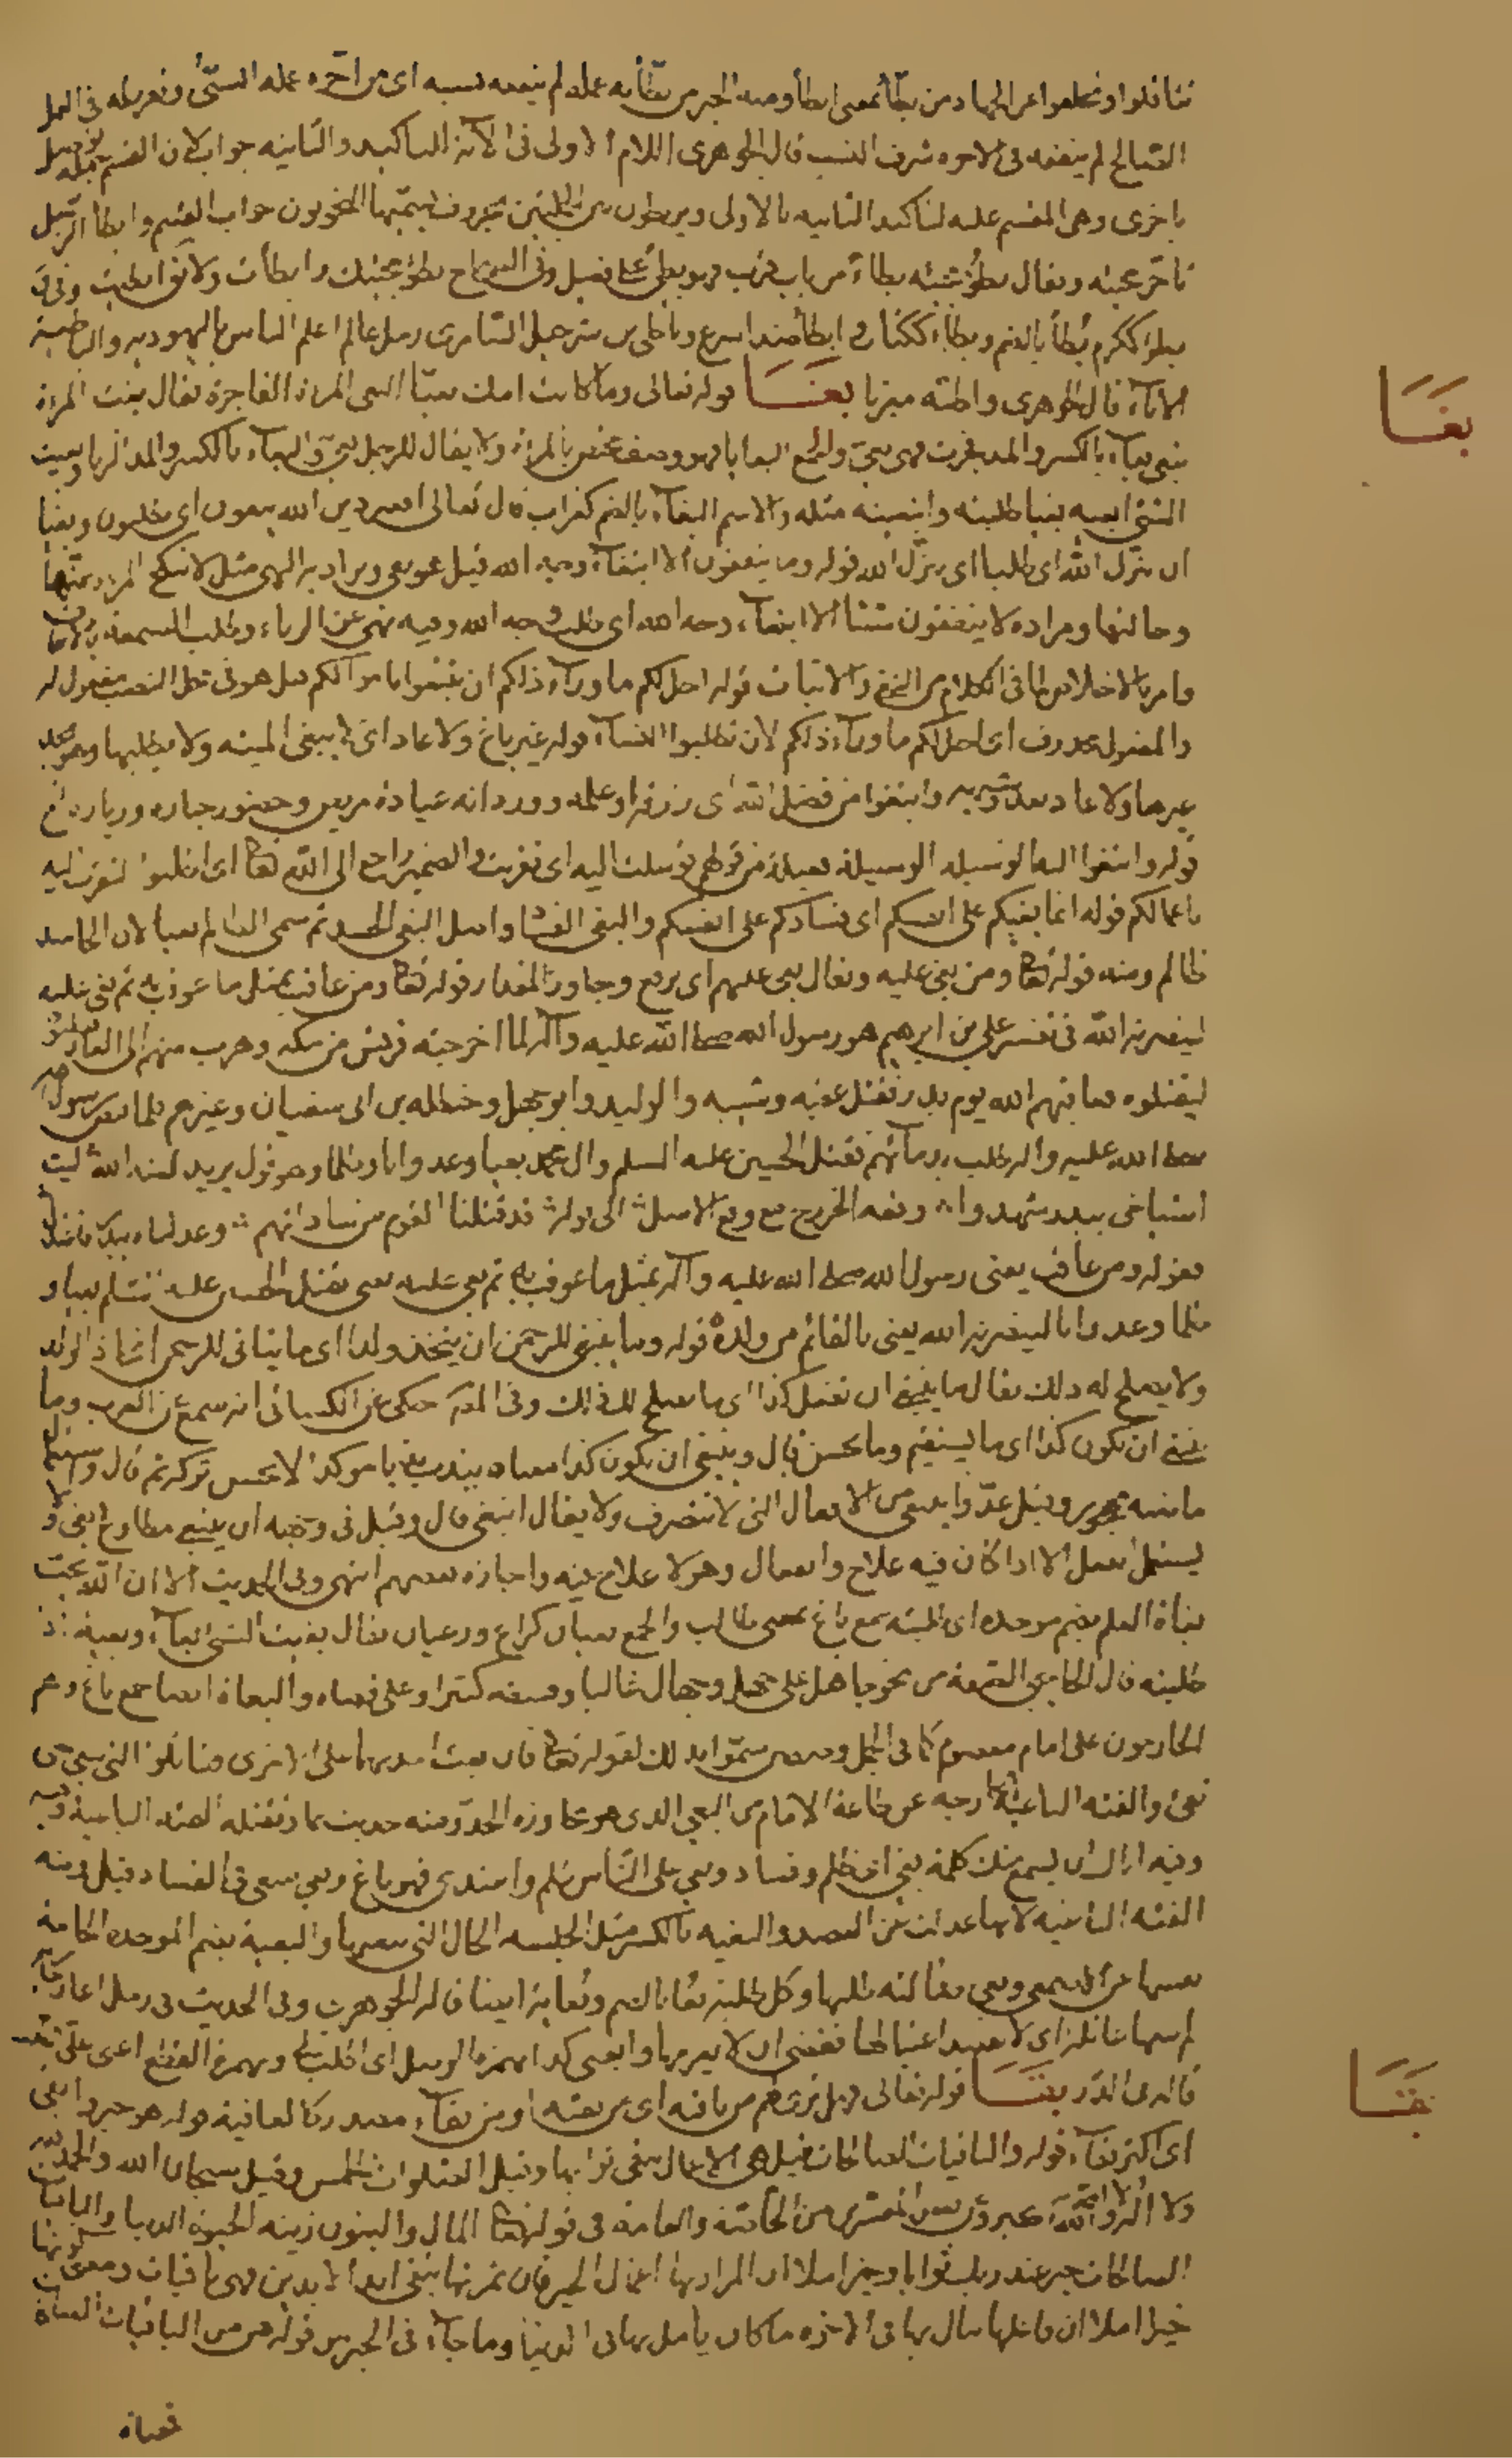 تثاقلوا وتخلفوا عن الجهاد من بطّأ بمعنى ابطأ ومنه الخبر من بطّأ به عمله لم ينفعه نسبه اى من اخّره عمله السيّئ وتفريطه فى العمل
الصّالح لم ينفعه فى الاخره شرف النسب قال الجوهرى اللام الاولى فى الآية للتاكيد والثانيه جواب لان القسم جمله توصل
باخرى وهى المقسم عليه لتاكيد الثانيه بالاولى ويربطون بين الجملتين بحروف يسمّيها النحويون جواب القسم وابطأ الرّجل
تاخّر مجيئه ويقال بطُؤ مجيئه بطاءً من باب قرب فهو بطئ على فعيل وفى الصحاح بطؤ مجيئك وابطأت ولا تقل ابطيت وفى ق
بطؤ ككرم بُطأ بالضم وبطاء ككتاب وابطأ ضد اسرع وباطى بن شرحبيل السّامرى رجل عالم اعلم الناس باليهودية والباطية
الاناء قال الجوهرى واظنّه معرّبا بغَـَا قوله تعالى وما كانت امك بغيّا البغى المراة الفاجرة يقال بغت المراة
تبغى بغاء بالكسر والمد فجرت فهى بغى والجمع البغايا فهو وصف مختص بالمراة ولا يقال للرجل بغى والبغاء بالكسر والمد الزنا وبغيت
الشئ ابغيه بغيا طلبته وابتغيته مثله والاسم البغاء بالضم كغراب قال تعالى افغير دين الله يبغون اى يطلبون وبغيا
ان ينزّل الله اى طلبا اى ينزّل الله قوله وما ينفقون الا ابتغاء وجه الله قيل هو نفى ويراد به النهى مثل لا تنكح المراة عمّتها
وخالتها ومراده لا ينفقون شيئا الا ابتغاء وجه الله اى طلب وجه الله وفيه نهى عن الرياء وطلب السمعة بالانفاق
وامر بالاخلاص لما فى الكلام من النفى والاثبات قوله احل لكم ما وراء ذلكم ان تبتغوا باموالكم قيل هو فى محل النصب مفعول له
والمفعول محذوف اى احل لكم ما وراء ذلكم لان تطلبوا النساء قوله غير باغ ولا عاد اى لا يبغى الميتة ولا يطلبها وهو يجد
غيرها ولا عاد يعدو شبعه وابتغوا من فضل الله اى رزقه او علمه وورد انه عيادة مريض وحضور جنازه وزياره اخ
قوله وابتغوا اليه الوسيله الوسيلة فعيلة من قولهم توسلت اليه اى تقربت والضمير راجع الى الله تعالى اى اطلبوا التقرب اليه
باعمالكم قوله انما بغيكم على انفسكم اى فسادكم على انفسكم والبغى الفساد واصل البغى الحسد ثم سمى الظالم بغيا لان الحاسد
ظالم ومنه قوله تعالى ومن بغى عليه ويقال بغى عليهم اى ترفع وجاوز المقدار قوله تعالى ومن عاقب بمثل ما عوقب به ثم بغى عليه
لينصرنه الله فى تفسير على بن ابرهيم هو رسول الله صلى الله عليه وآله لما اخرجته قريش من مكه وهرب منهم الى الغار وطلبوه
ليقتلوه فعاقبهم الله يوم بدر فقتل عتبه وشيبه والوليد وابو جهل وحنظله بن ابى سفيان وغيرهم فلما قبض رسول الله
صلى الله عليه واله طلب بدمائهم فقتل الحسين عليه السلم وال محمد بغيا وعدوانا وظلما وهو قول يزيد لعنه الله ليت
اشياخى ببدر شهدوا وقعه الخزرج مع وقع الاسل الى قوله قد قتلنا القوم من ساداتهم وعدلناه ببدر فاعتدل
فقوله ومن عاقب يعنى رسول الله صلى الله عليه وآله بمثل ما عوقب به ثم بغى عليه يعنى بقتل الحسين عليه السلم بغيا و
ظلما وعدوانا لينصرنه الله يعنى بالقائم من ولده قوله وما ينبغى للرحمن ان يتخذ ولدا اى ما يتاتى للرحمن اتخاذ الولد
ولا يصلح له ذلك يقال ما ينبغى ان تفعل كذا اى ما يصلح لك ذلك وفى المص حكى عن الكسائى انه سمع من العرب وما
ينبغى ان يكون كذا اى ما يستقيم وما يحسن قال وينبغى ان يكون كذا معناه يندب ندبا موكدا لا يحسن تركه ثم قال واستعمال
ماضيه مهجور وقيل عدّوا ينبغى من الافعال التى لا تتصرف ولا يقال انبغى قال وقيل فى وجهه ان ينبغى مطاوع بغى ولا
يستعمل انفعل الا اذا كان فيه علاج وانفعال وهو لا علاج فيه واجازه بعضهم انتهى وفى الحديث الا ان الله يحب
بغاة العلم بضم موحده اى طلبته جمع باغ بمعنى طالب والجمع بغيان كراع ورعيان يقال بغيت الشئ بغاء وبغية اذ
طلبته قال الكافيجى الصفة من نحو جاهل على جهل وجهال غالبا وفسقه كثيرا وعلى قضاه والبغاة ايضا جمع باغ وهم
الخارجون على امام معصوم كما فى الجمل وصفين سمّوا بذلك لقوله تعالى فان بغت احديهما على الاخرى فقاتلوا التى تبغى حتى
تفئ والفئه الباغية الخارجه عن طاعة الامام من البغى الذى هو مجاوزه الحدّ ومنه حديث عمار تقتله الفئه الباغية وفيه
وفيه اياك ان يسمع منك كلمة بغى اى ظلم وفساد وبغى على الناس ظلم واعتدى فهو باغ وبغى سعى فى الفساد قيل ومنه
الفئه الباغيه لانها عدلت عن القصد والبغيه بالكسر مثل الجلسه الحال التى تبغيها والبغية بضم الموحده الحاجة
نفسها عن الاصمعى وبغى ضالته طلبها وكل طلبة بُغا بالضم وبُغاية ايضا قاله الجوهرى وفى الحديث فى رجل اعار جارية
لم يبغها غائلة اى لا يقصد اغتيالها فقضى ان لا يغرمها وابغنى كذا بهمزة الوصل اى اطلب لى وبهمزة القطع اعنى على طلبه
قاله فى الدّر بقـَـَا قوله تعالى فهل ترى لهم من باقيه اى من بقيّة او من بقاء مصدر كالعافية قوله هو خير وابقى
اى اكثر بقاء قوله والباقيات الصالحات قيل هى الاعمال يبقى ثوابها وقيل الصلوات الخمس وقيل سبحان الله والحمد لله
ولا اله الا الله والله اكبر وعن بعض المفسرين من الخاصة والعامة فى قوله تعالى المال والبنون زينه الحيوة الدنيا والباقيات
الصالحات خير عند ربك ثوابا وخير املا ان المراد بها اعمال الخير فان ثمرتها تبقى ابد الابدين فهى باقيات ومعنى كونها
خيرا املا ان فاعلها ينال بها فى الاخره ما كان يامل بها فى الدنيا وما جاء فى الخبر من قوله هن من الباقيات الصالحات
بغـَا
بقـَا